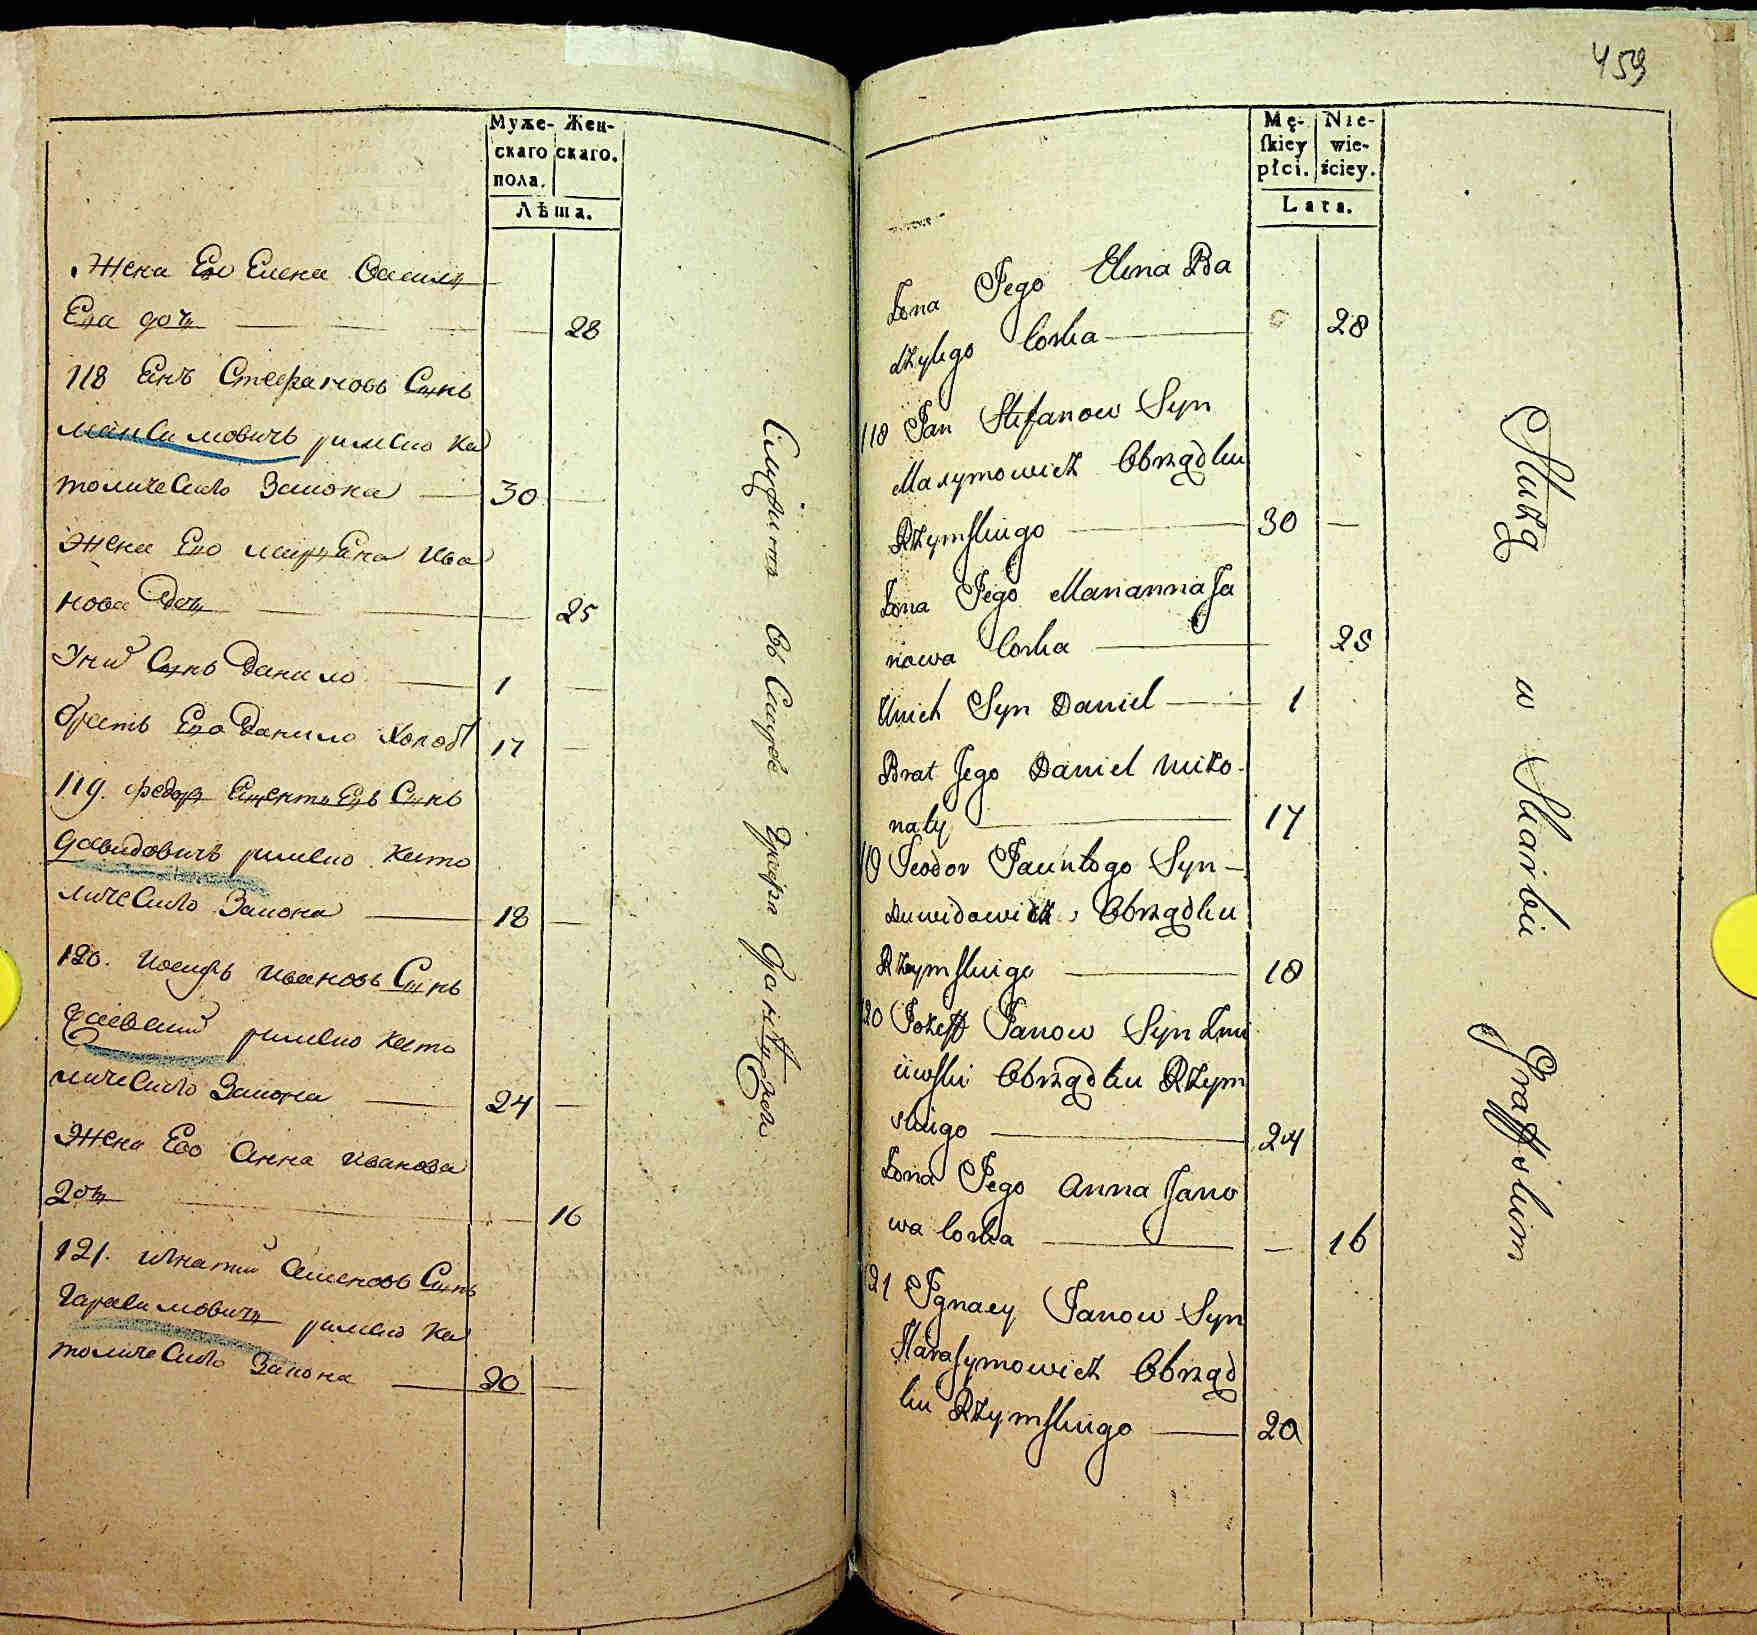 Муже-
скаго
пола.
Жен-
скаго.
Лѣта.
Жена Его Елена Василь
Ева дочь 28
118 Янъ Стефановъ Сынъ
Максимовичь римско ка
толическаго Закона 30
Жена Его Марьяна Ива
нова дочь 25
Ихъ Сынъ Данило 1
братъ Его Данило Холос 17
119. Федоръ Сынъ
давидовичь римско като
лическаго Закона 18
120. Иосифъ Ивановъ Сынъ
римско като
лическаго Закона 24
Жена Его Анна Иванова
дочь 16
121. Игнатий Сынъ
Гарасимовичь римско ка
толическаго Закона 20
Служитъ въ Скарбѣ Графа
459
Mę-
skiey
płci.
Nie-
wie-
ściey.
Lata.
Żona Jego Elena Ba
zylego Corka 28
118 Jan Stefanow Syn
Maxymowicz Obrządku
Rzymskiego 30
Żona Jego Marianna Ja
nowa Corka 25
Ich Syn Daniel 1
Brat Jego Daniel nieżo-
naty 17
119 Teodor Syn
Dawidowicz Obrządku
Rzymskiego 18
120 Jozeff Janow Syn
Obrządku Rzym
skiego 24
Żona Jego Anna Jano
wa Corka 16
121 Ignacy Janow Syn
Harasymowicz Obrząd
ku Rzymskiego 20
Służą w Skarbie Graffskim